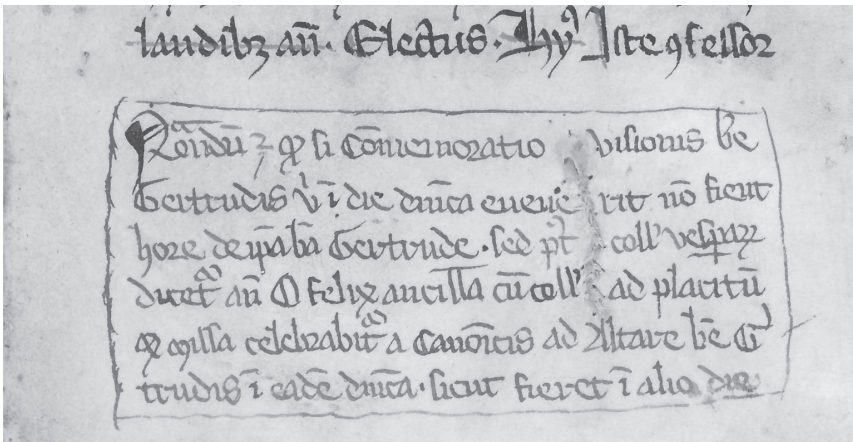 laudibꝫ an̄. Electus. Hyꝰ Iste ꝯfessor
Notandū ꝙ si Cōmemoratio visionis bē
Gertrudis v̾ ī die dnīca euene rit nō fient
hore de ip̄a bā Gertrude. sed pꝰt coll' vesꝑaꝝ
dicet᷑ an̄ O felix ancilla cū coll' ad placitū
ꝙ missa celebrabit᷑ a Canōicis ad Altare bē G̾
trudis ī eadē dnīca. sicut fieret ī alio die